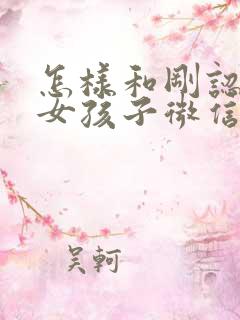 怎樣和剛認
女孩子微信
吴軻